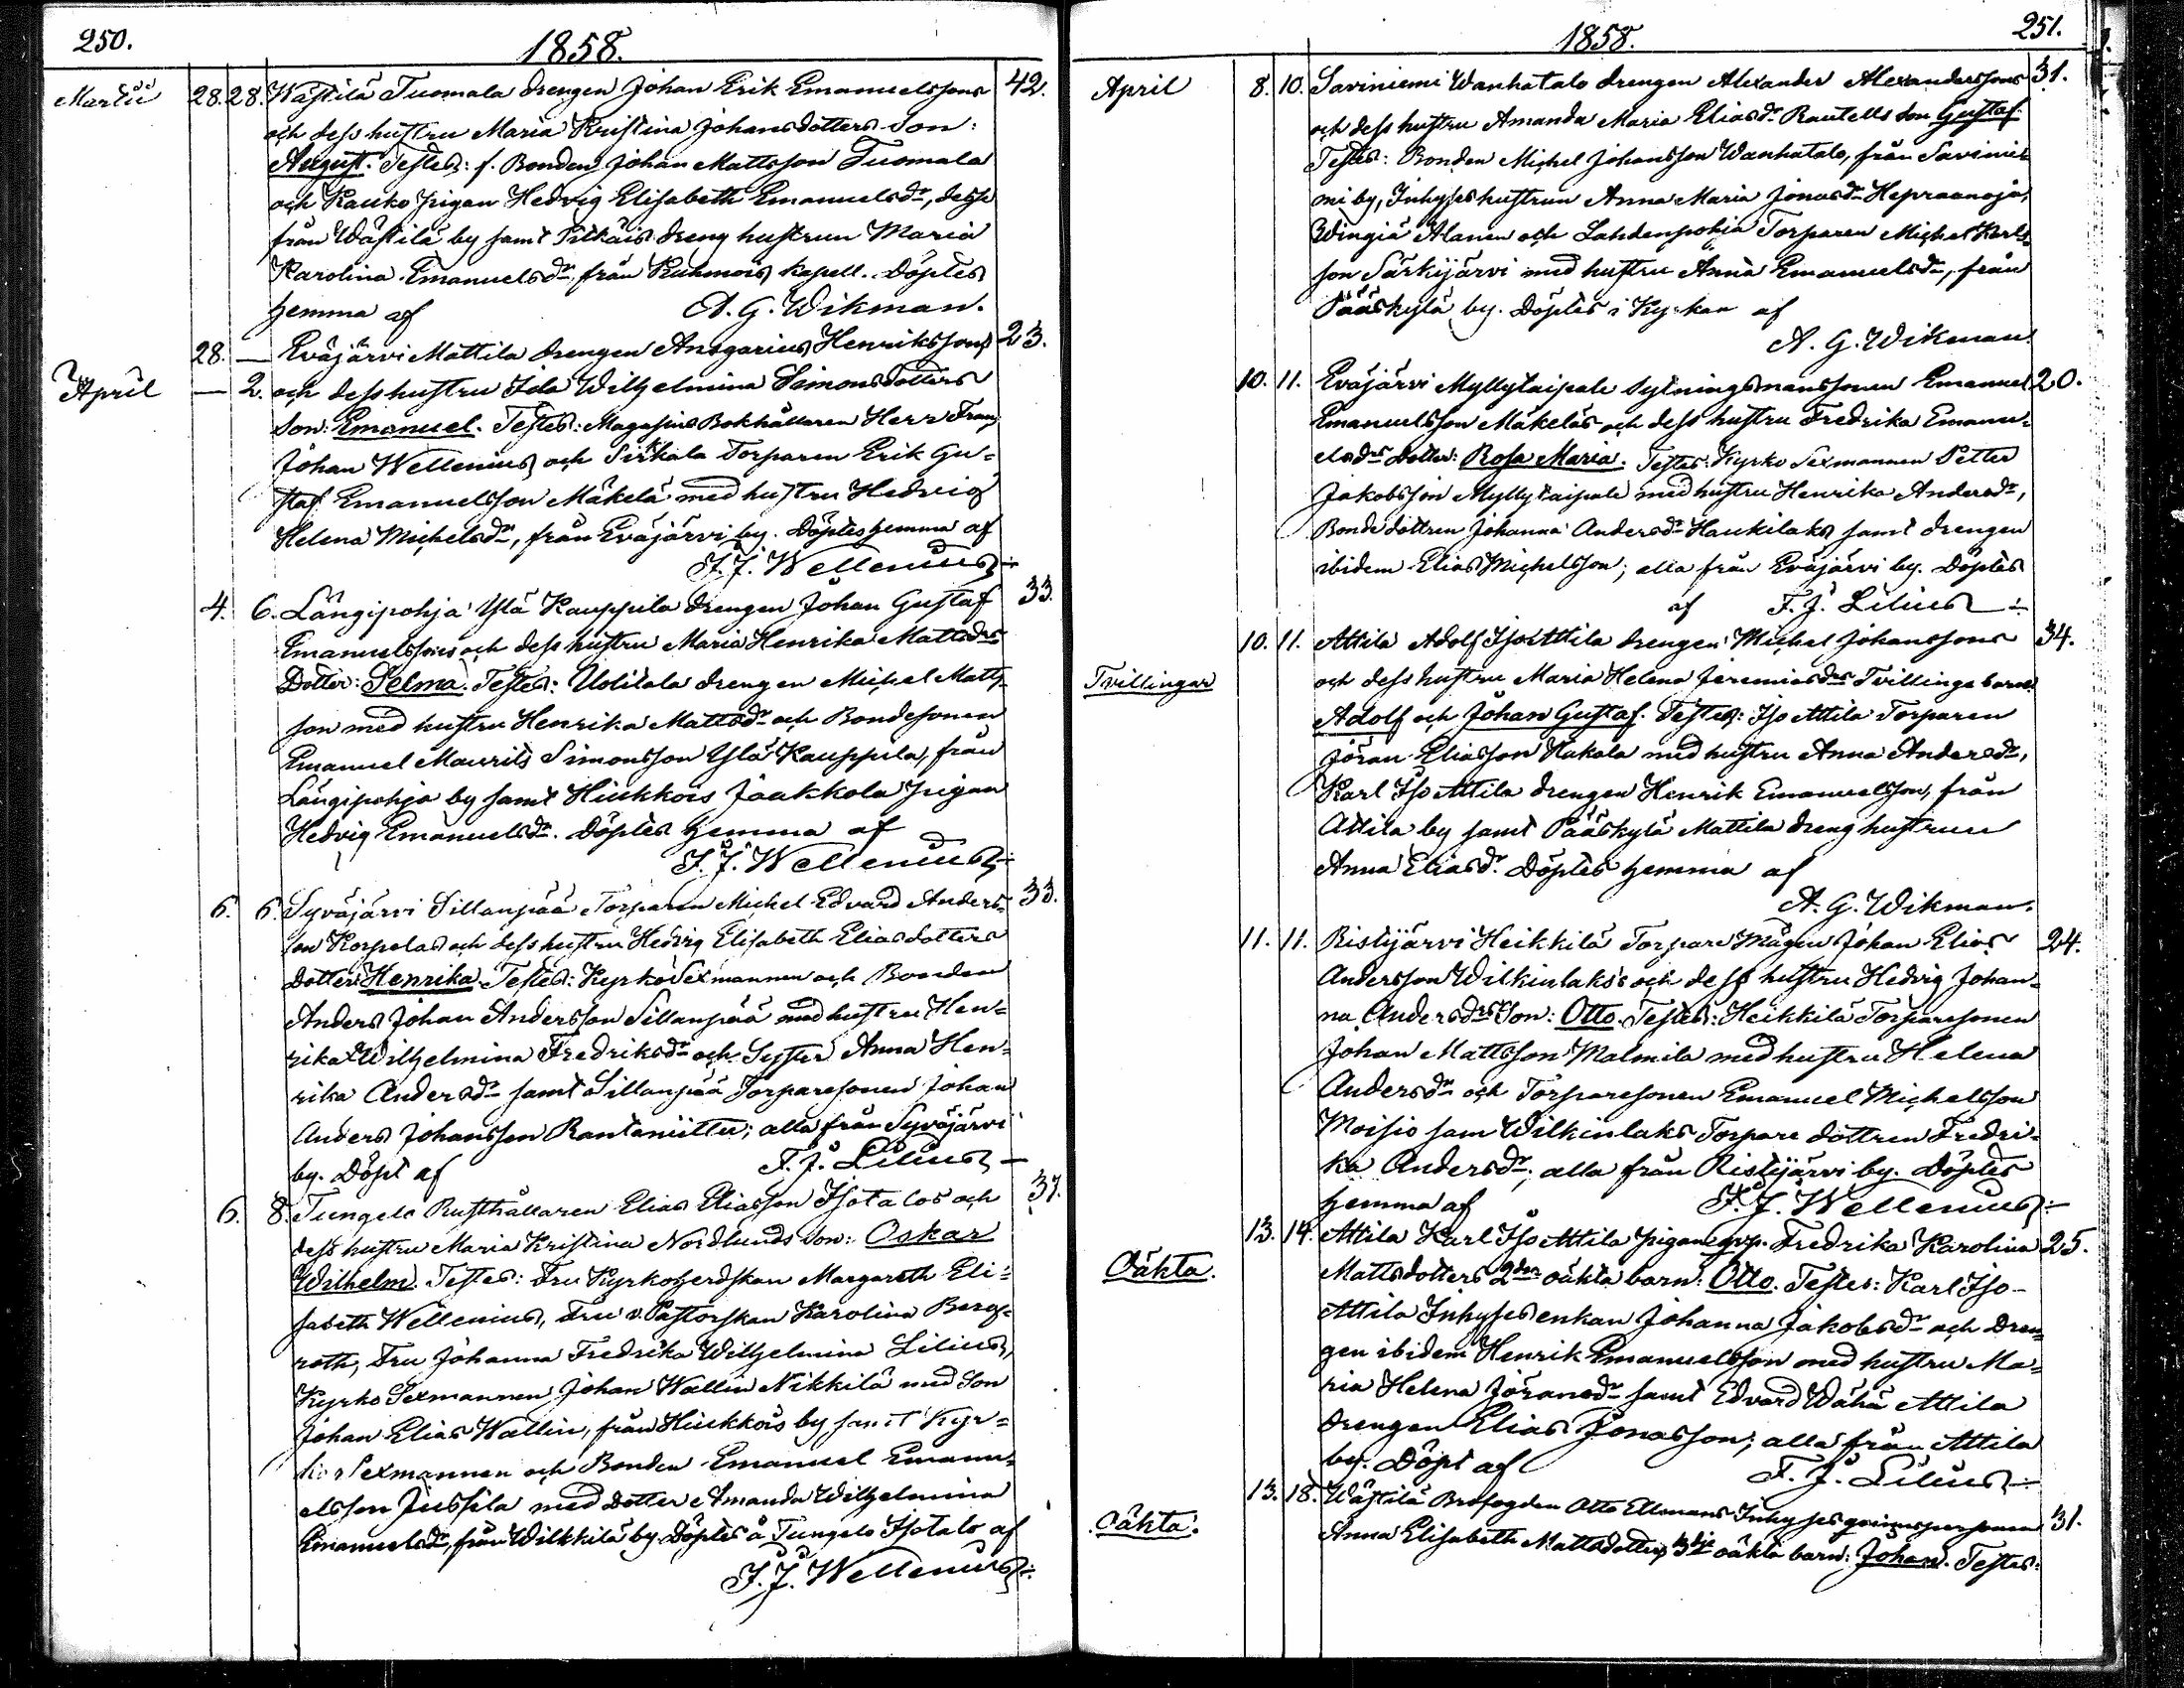 250.
1858.
Martii 28. 28. Wästilä Tuomala drengen Johan Erik Emanuelssons 42.
och dess hustru Maria Kristina Johansdotters Son:
August. Testes: f. Bonden Johan Mattsson Tuomala
och Kauko pigan Hedvig Elisabeth Emanuelsdr, desse
från Wästilä by samt Pitkäis dreng hustrun Maria
Karolina Emanuelsdr från Kuhmois kapell. Döptes
hemma af A. G. Wikman.
28. — Eväjärvi Mattila drengen Ansgarius Henrikssons 23.
April — 2. och dess hustru Ida Wilhelmina Simonsdotters
Son: Emanuel. Testes: Magasins Bokhållaren Herr Frans
Johan Wellenius och Sirkala Torparen Erik Gu-
staf Emanuelsson Mäkelä med hustru Hedvig
Helena Michelsdr, från Eväjärvi by. Döptes hemma af
F. J. Wellenius
4. 6. Längipohja Ylä Kauppila drengen Johan Gustaf 33.
Emanuelssons och dess hustru Maria Henrika Mattsdrs
Dotter: Selma. Testes: Uolitala drengen Michel Matts-
son med hustru Henrika Mattsdr och Bondesonen
Emanuel Maurits Simonsson Ylä Kauppila, från
Längipohja by samt Hiukkois Jaakkola pigan
Hedvig Emanuelsdr. Döptes hemma af
F. J. Wellenius
6. 6. Syväjärvi Sillanpää Torparen Michel Edvard Anders- 33.
son Korpelas och dess hustru Hedvig Elisabeth Eliasdotters
Dotter: Henrika. Testes: Kyrko Sexmannen och Bonden
Anders Johan Andersson Sillanpää med hustru Hen-
rika Wilhelmina Fredriksdr och Syster Anna Hen-
rika Andersdr samt Sillanpää Torparesonen Johan
Anders Johansson Rantaniitty; alla från Syväjärvi
by. Döpt af F. J. Lilius
6. 8. Tungelo Rusthållaren Elias Eliasson Isotalos och 37.
dess hustru Maria Kristina Nordlunds Son: Oskar
Wilhelm. Testes: Fru Kyrkoherdskan Margareth Eli-
sabeth Wellenius, Fru v. Pastorskan Karolina Berg-
roth, Fru Johanna Fredrika Wilhelmina Lilius,
Kyrko Sexmannen Johan Wallin Nikkilä med Son
Johan Elias Wallin, från Hiukkois by samt Kyr-
ko Sexmannen och Bonden Emanuel Emanu-
elsson Jussila med Dotter Amanda Wilhelmina
Emanuelsdr, från Wilkkilä by. Döptes å Tungelo Isotalo af
F. J. Wellenius
251.
1858.
April 8. 10. Saviniemi Wanhatalo drengen Alexander Alexanderssons 31.
och dess hustru Amanda Maria Eliasdr Rautells Son Gustaf.
Testes: Bonden Michel Johansson Wanhatalo, från Savinie-
mi by, Inhyses hustrun Anna Maria Jonasdr Hepraanoja,
Wingiä Alanen och Lahdenpohja Torparen Michel Karls-
son Särkijärvi med hustru Anna Emanuelsdr, från
Pääskylä by. Döptes i Kyrkan af
A. G. Wikman.
10. 11. Eväjärvi Myllytaipale Sytningsmanssonen Emanuel 20.
Emanuelsson Mäkeläs och dess hustru Fredrika Emanu-
elsdrs Dotter: Rosa Maria. Testes: Kyrko Sexmannen Petter
Jakobsson Myllytaipale med hustru Henrika Andersdr,
Bondedottren Johanna Andersdr Haukilaks samt drengen
ibidem Elias Michelsson; alla från Eväjärvi by. Döptes
af F. J. Lilius
10. 11. Attila Adolf Iso Attila drengen Michel Johanssons 34.
Tvillingar och dess hustru Maria Helena Jeremiasdrs Tvillinge barn:
Adolf och Johan Gustaf. Testes: Iso Attila Torparen
Jöran Eliasson Hakala med hustru Anna Andersdr,
Karl Iso Attila drengen Henrik Emanuelsson, från
Attila by samt Pääskylä Mattila dreng hustrun
Anna Eliasdr. Döptes hemma af
A. G. Wikman.
11. 11. Ristijärvi Heikkilä Torpare Mågen Johan Elias 24.
Andersson Wilkinlaks's och dess hustru Hedvig Johan-
na Andersdrs Son: Otto. Testes: Heikkilä Torparesonen
Johan Mattsson Malmila med hustru Helena
Andersdr och Torparesonen Emanuel Michelsson
Moisio sam Wilkinlaks Torpare dottren Fredri-
ka Andersdr; alla från Ristijärvi by. Döptes
hemma af F. J. Wellenius
13. 14. Attila Karl Iso Attila pigan qvp. Fredrika Karolina 25.
Oäkta. Mattsdotters 2dra oäkta barn: Otto. Testes: Karl Iso-
Attila Inhyses enkan Johanna Jakobsdr och Dren-
gen ibidem Henrik Emanuelsson med hustru Ma-
ria Helena Jöransdr samt Edvard Wähä Attila
drengen Elias Jonasson; alla från Attila
by. Döpt af F. J. Lilius
13. 18. Wästilä Brofogden Otto Ellmans Inhyses qvinspersonen 31.
Oäkta. Anna Elisabeth Mattsdotters 3dje oäkta barn: Johan. Testes: